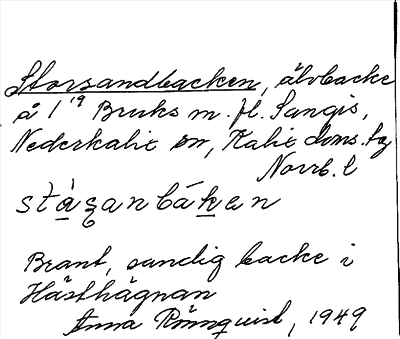 Storsandbacken, älvbacke
å 1¹⁹ Bruks m. fl. Sangis,
Nederkalix sn, Kalix doms. bg
Norrb. l
stàʒanbákan
Brant, sandig backe i
Hästhägnan
Anna Rönnquist, 1949